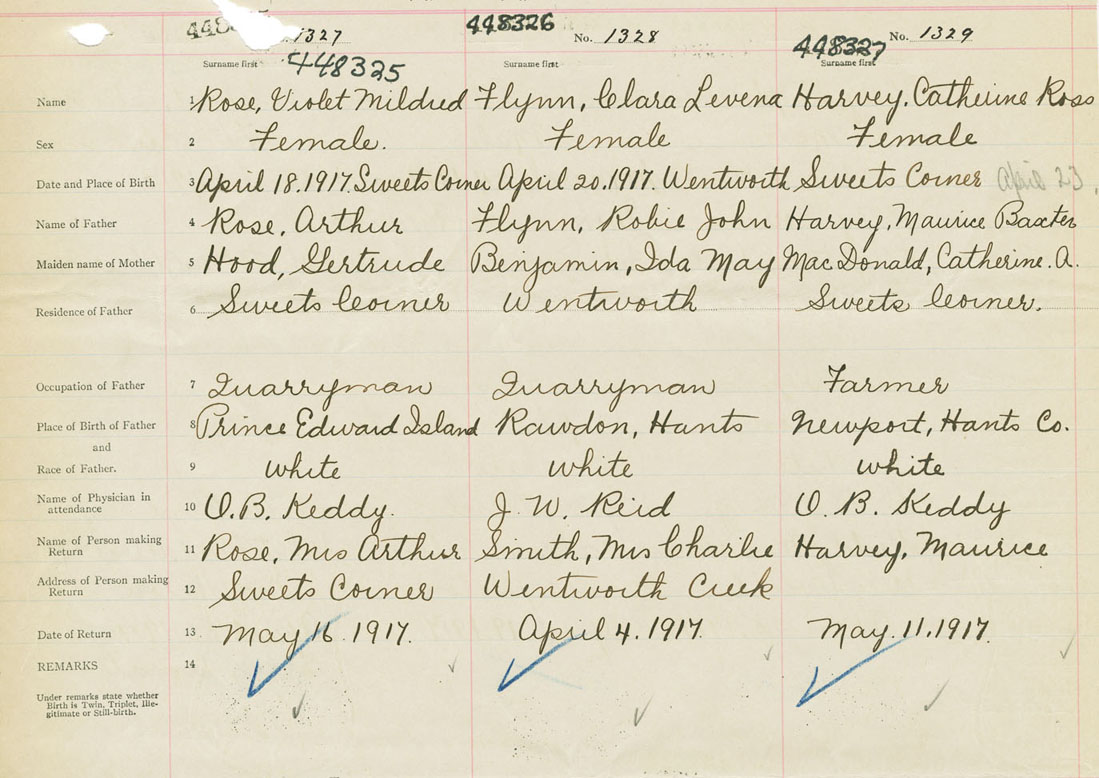 448326
448325
No. 1327 No. 1328 No. 1329
448327
Surname first Surname first Surname first
Name 1 Rose, Violet Mildred Flynn, Clara Levena Harvey, Catherine Ross
Sex 2 Female. Female Female
Date and Place of Birth 3 April 18.1917. Sweets Corner April 20.1917. Wentworth Sweets Corner April 23.
Name of Father 4 Rose, Arthur Flynn, Robie John Harvey, Maurice Baxter
Maiden name of Mother 5 Hood, Gertrude Benjamin, Ida May MacDonald, Catherine. A.
Residence of Father 6 Sweets Corner Wentworth Sweets Corner.
Occupation of Father 7 Quarryman Quarryman Farmer
Place of Birth of Father 8 Prince Edward Island Rawdon, Hants Newport, Hants Co.
and
Race of Father. 9 white white white
Name of Physician in attendance 10 O.B. Keddy. J. W. Reid O. B. Keddy
Name of Person making Return 11 Rose, Mrs Arthur Smith, Mrs Charlie Harvey, Maurice
Address of Person making Return 12 Sweets Corner Wentworth Creek
Date of Return 13 May 16.1917. April 4.1917. May.11.1917.
REMARKS 14
Under remarks state whether
Birth is Twin, Triplet, Ille-
gitimate or Still-birth.